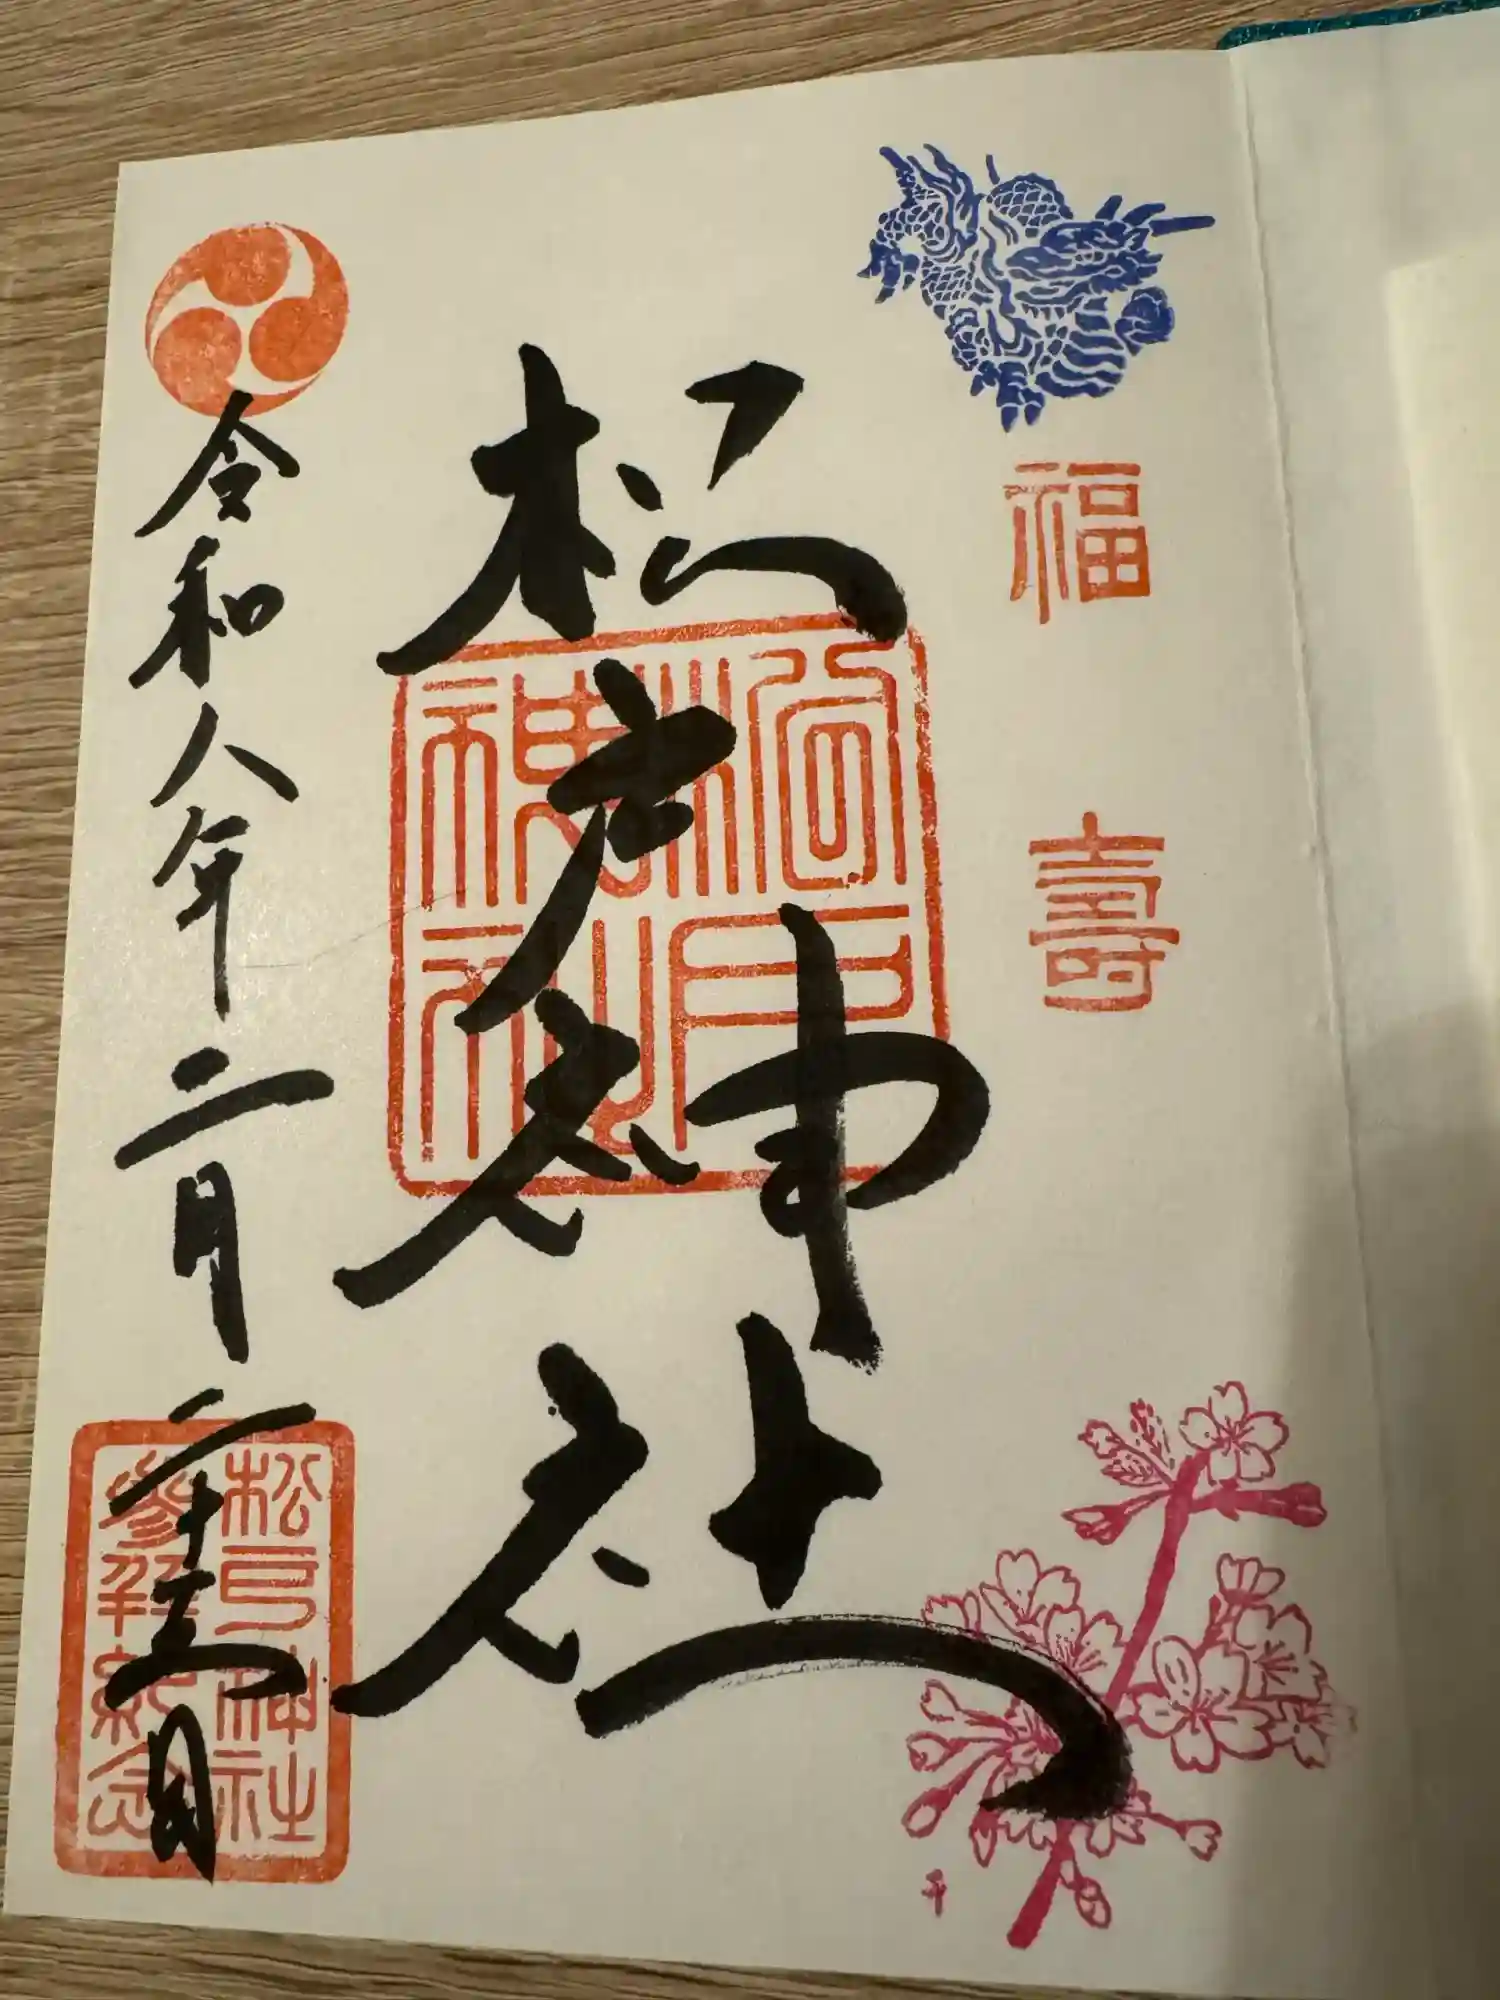 福壽
松戸神社
松戸神社
令和八年二月二十三日
松戸神社
參拜紀念
千